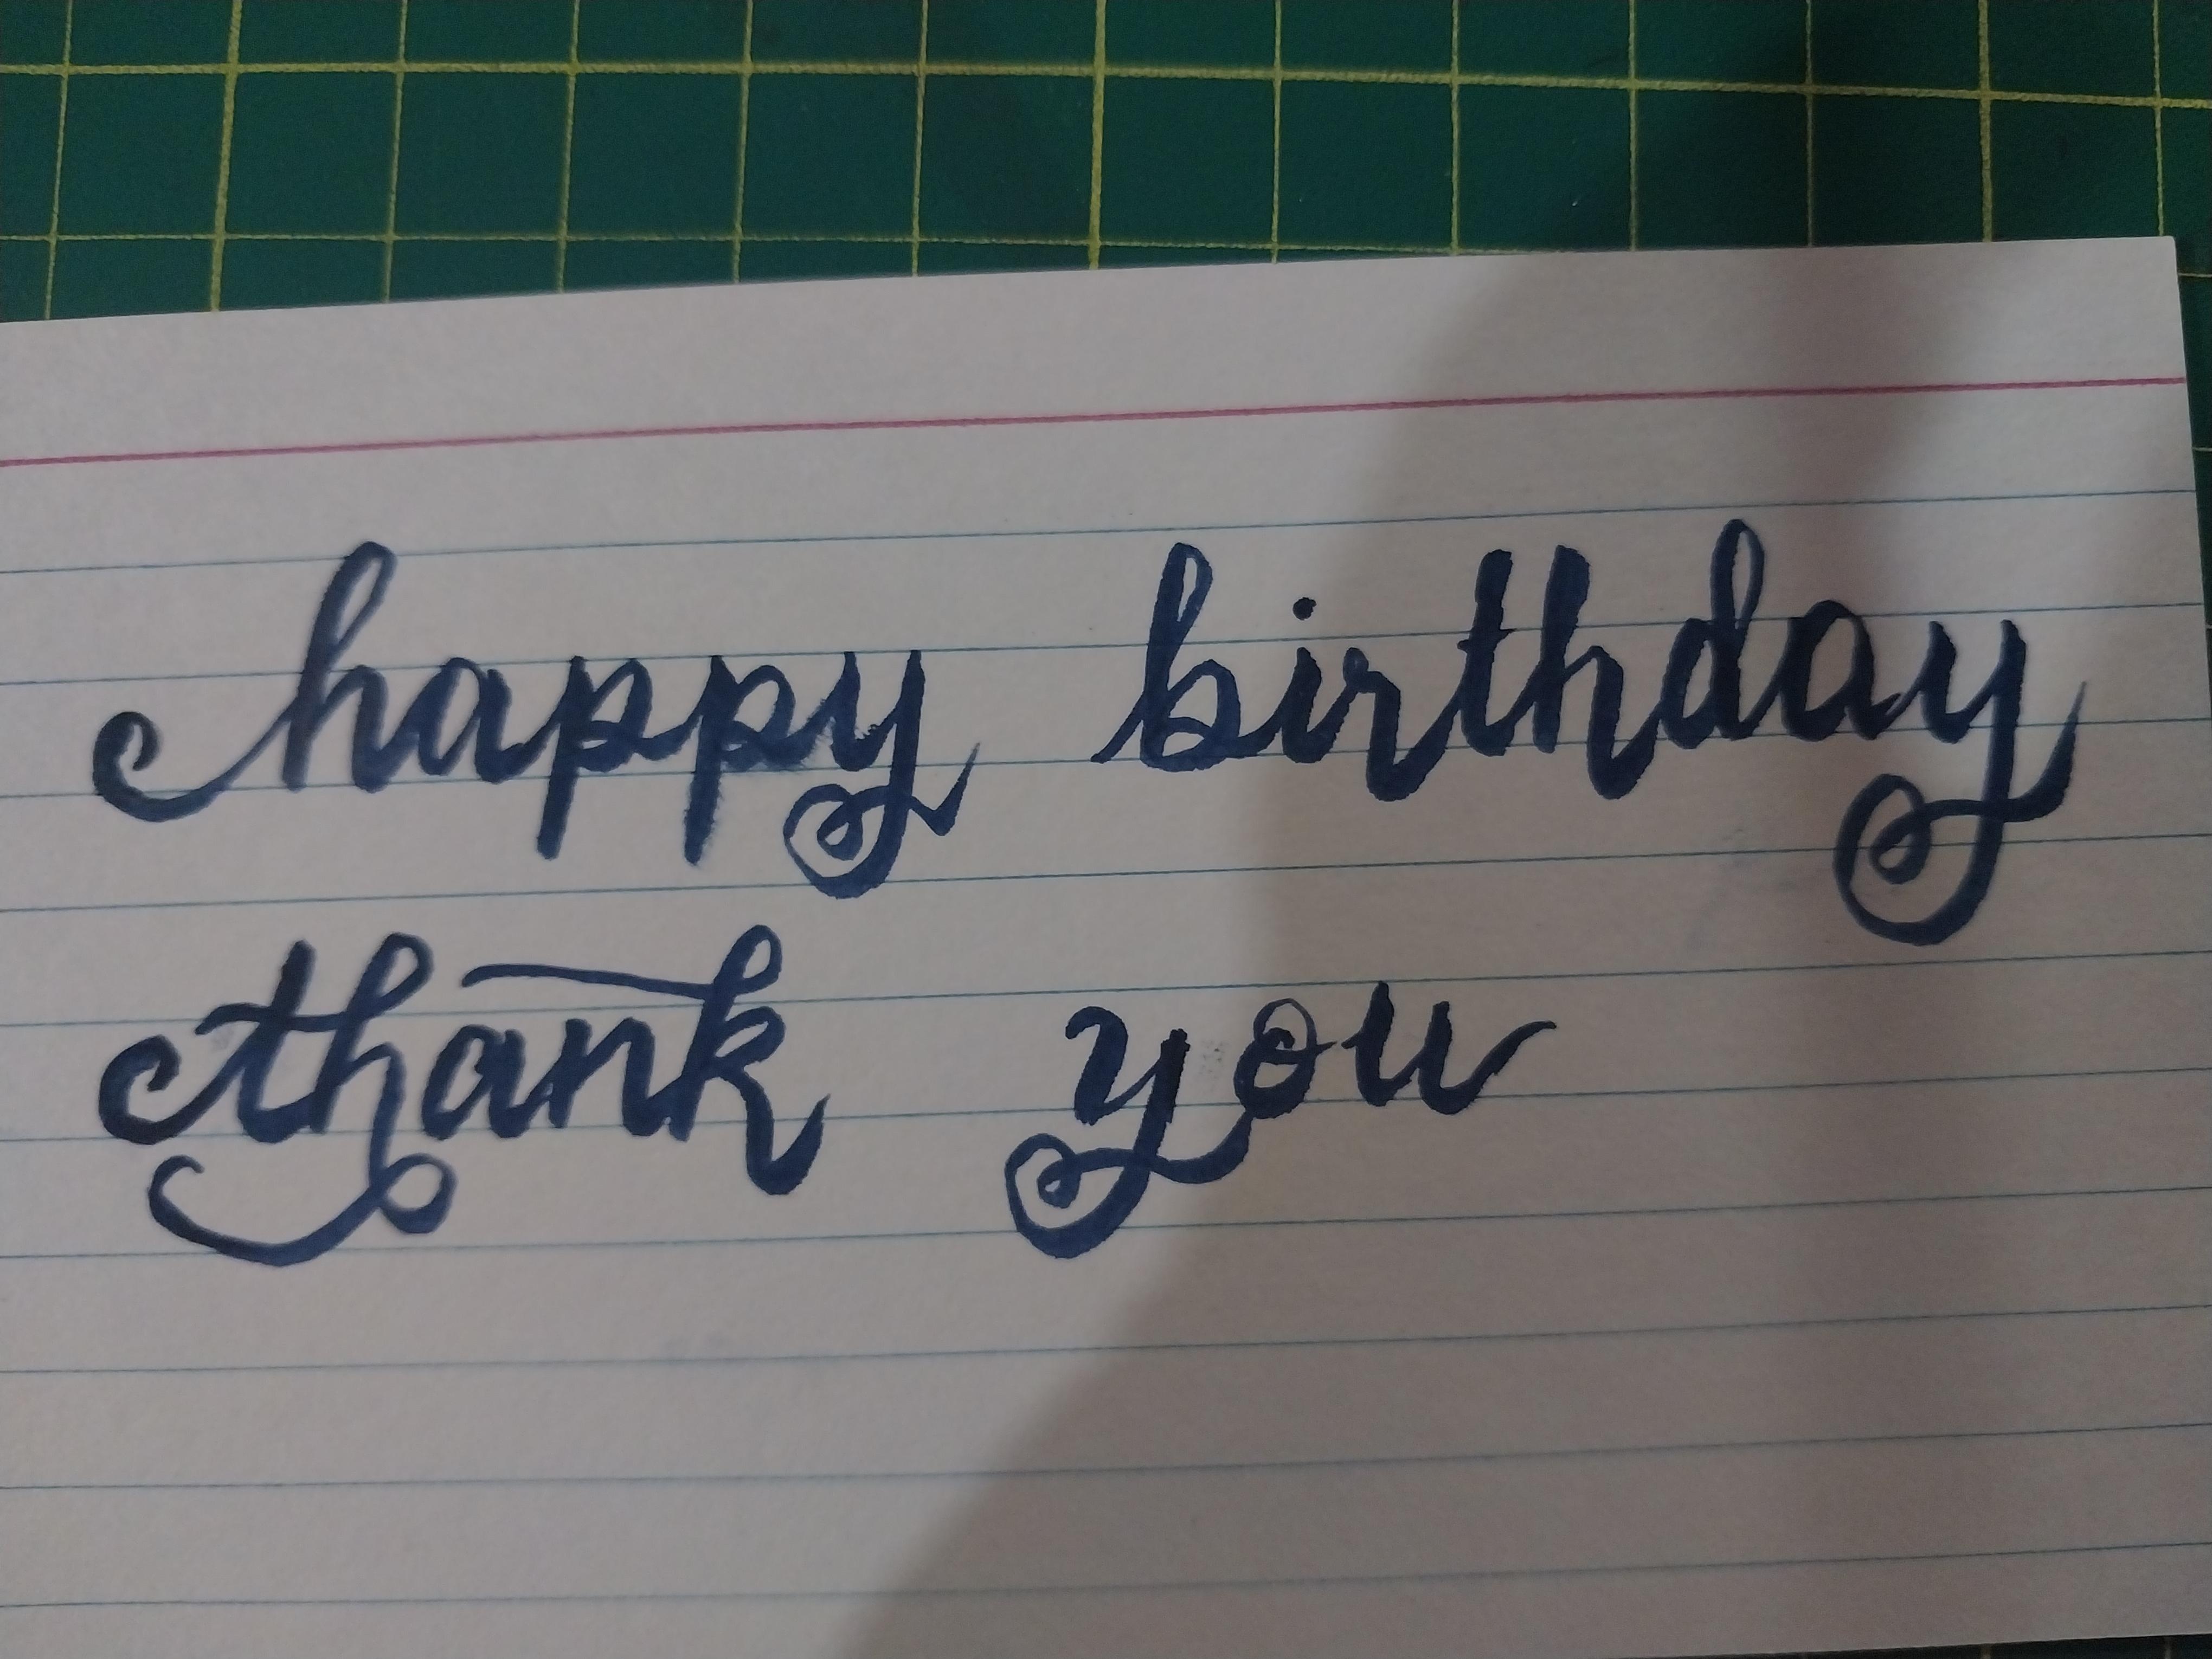 happy birthday
thank you